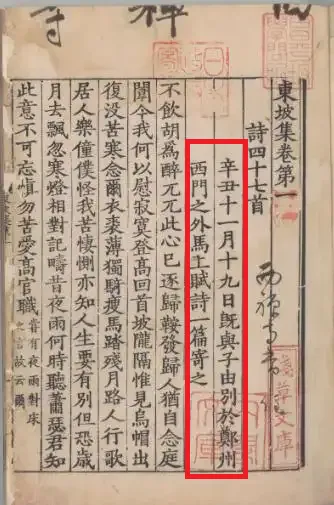 禪寺
東坡集卷第一
詩四十七首
辛丑十一月十九日既與子由別於鄭州
西門之外馬上賦詩一篇寄之
不飲胡爲醉兀兀此心已逐歸鞍發歸人猶自念庭
闈今我何以慰寂寞登高回首坡隴隔惟見烏帽出
復没苦寒念爾衣裘薄獨騎瘦馬踏殘月路人行歌
居人樂僮僕怪我苦悽惻亦知人生要有別但恐歳
月去飄忽寒燈相對記疇昔夜雨何時聽蕭瑟君知
此意不可忘慎勿苦愛高官職
嘗有夜雨對床
之言故云爾
淺草文庫